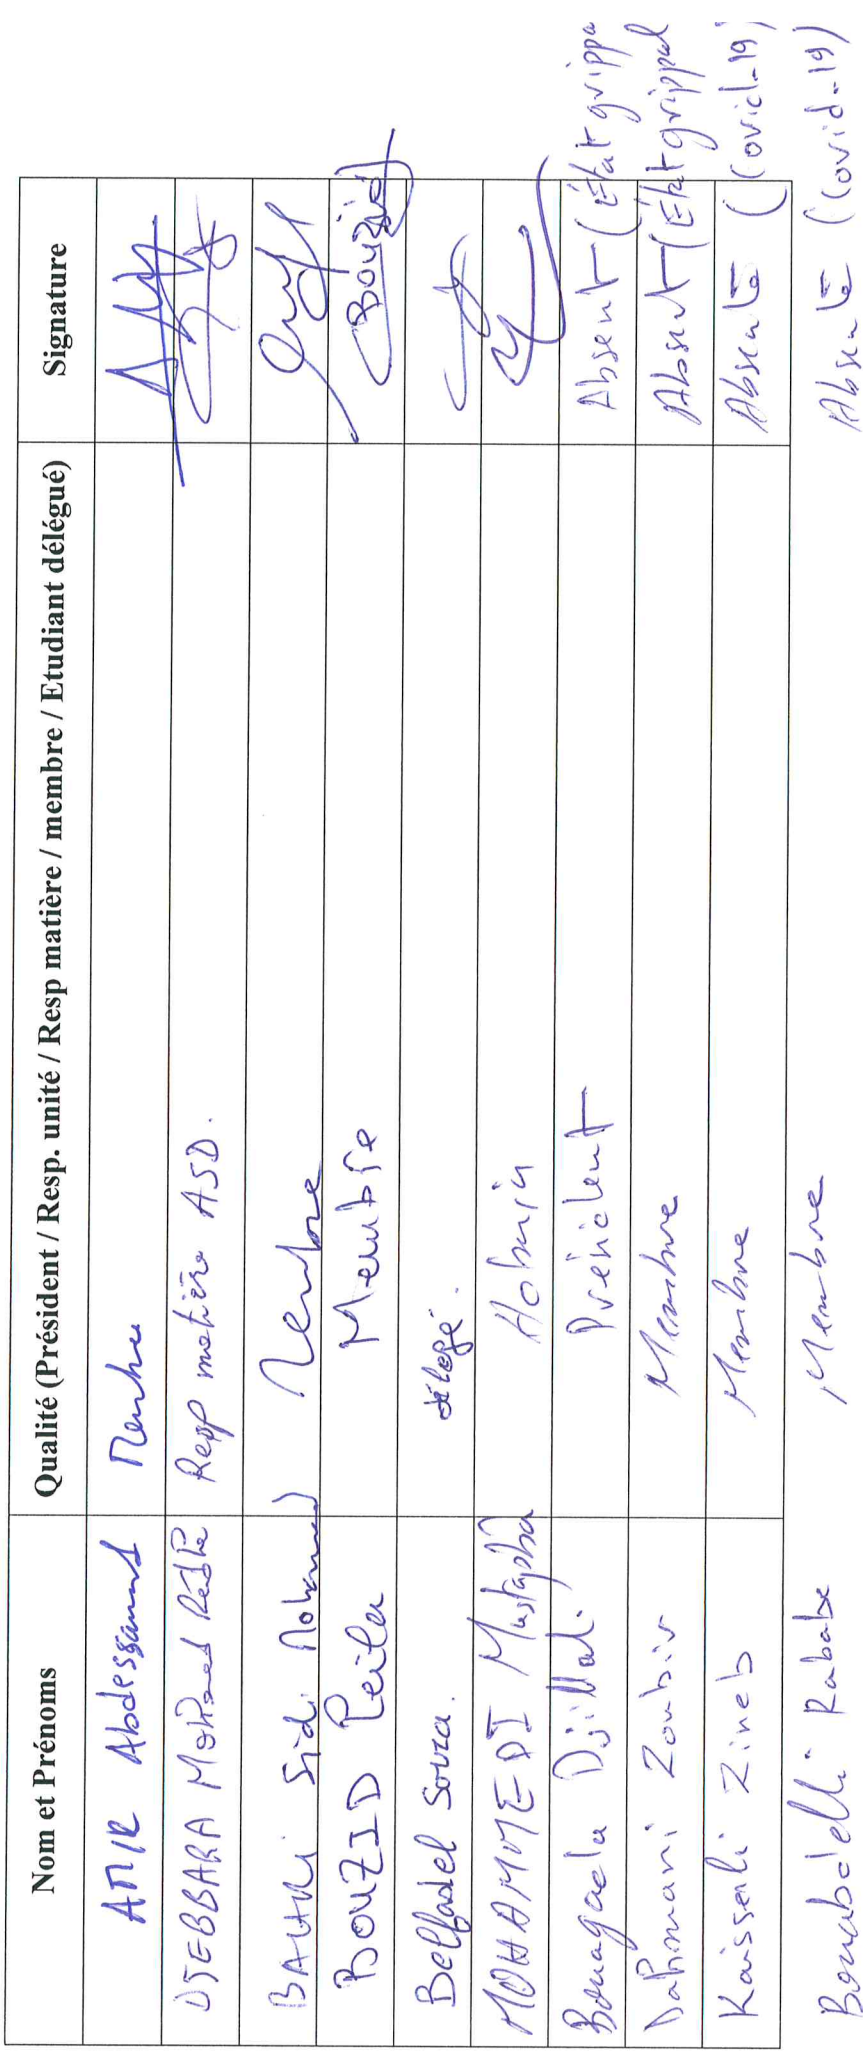 Nom et Prénoms Qualité (Président / Resp. unité / Resp matière / membre / Etudiant délégué) Signature
AMIR Abdessamad Membre
DJEBBARA Mohamed Redha Resp matière ASD.
BAHRI Sidi Mohamed Membre
BOUZID Leila Membre Bouzid
Belfadel Souza. délégé.
MOHAMMEDI Mustapha
Bouagada Djillali Président Absent (État grippa
Dahmani Zoubir Membre Absent (État grippal
Kaisserli Zineb Membre Absente (Covid-19)
Bouabdelli Rabab Membre Absente (Covid-19)